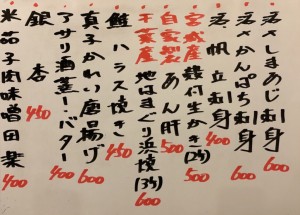 活〆しまあじ刺身 600
活〆かんぱち刺身 600
活帆立刺身 400
宮城産殻付生かき(2ケ) 500
自家製あん肝 500
千葉産地はまぐり浜焼(3ケ) 600
鮭ハラス焼き 450
真子かれい唐揚げ 600
アサリ酒蒸し・バター 400
銀杏 450
米茄子肉味噌田楽 400